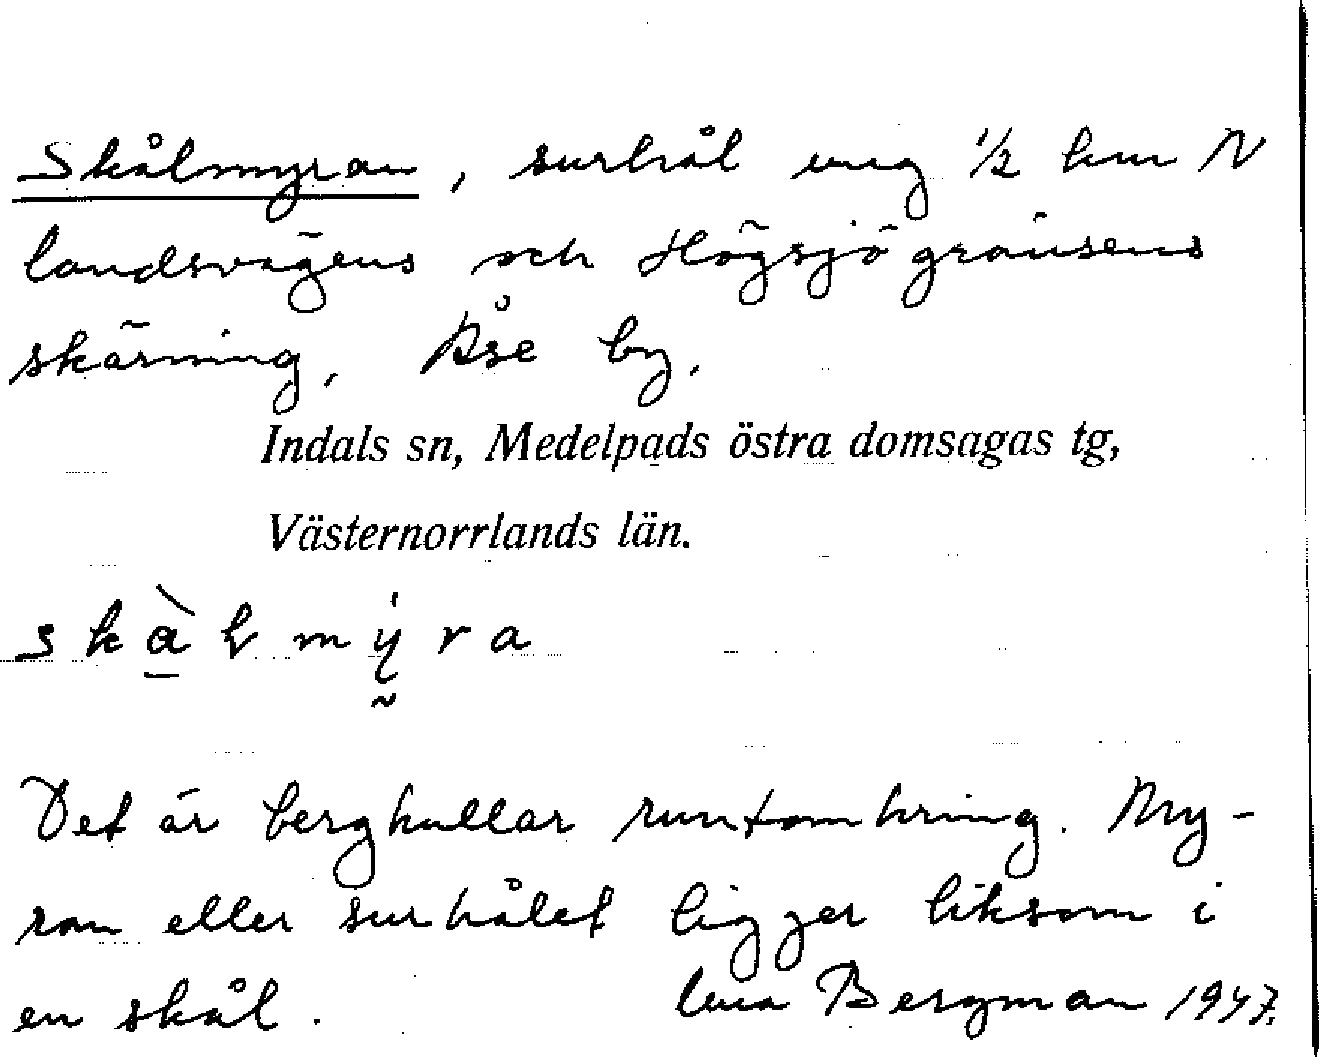 Skålmyran, surhål ung ½ km N
landsvägens och Högsjögränsens
skärning, Åse by.
Indals sn, Medelpads östra domsagas tg,
Västernorrlands län.
Det är bergkullar runtomkring. My-
ran eller surhålet ligger liksom i
en skål. Bergman 1947.